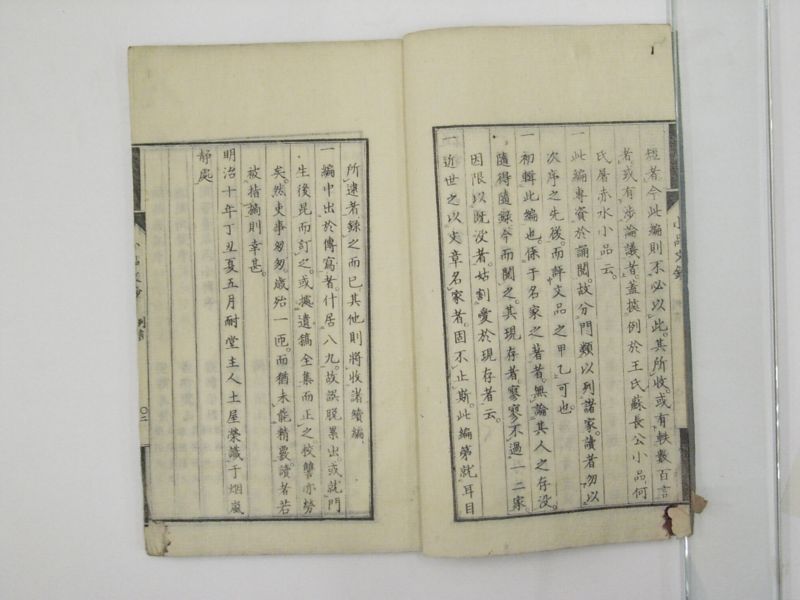 短者今此編則不必以此其所收或有軼數百言
者或有渉論議者蓋挨例於王氏蘇長公小品何
氏屠赤水小品云
一此編專資於誦閲故分門類以列諸家讀者勿以
次序之先後而評文品之甲乙可也
一初輯此編也係于名家之著者無論其人之存没
隨得隨録今而閲之其現存者寥寥不過一二家
因限以既没者姑割愛於現存者云
一近世之以文章名家者固不止斯此編第就耳目
所逮者録之而已其他則將收諸續編
一編中出於傳寫者什居八九故誤脱累出或就門
生後昆而訂之或據遺稿全集而正之校讐亦勞
矣然吏事匆匆歳殆一匝而猶未能精覈讀者若
被指摘則幸甚
明治十年丁丑夏五月耐堂主人土屋榮識于烟嵐
靜處